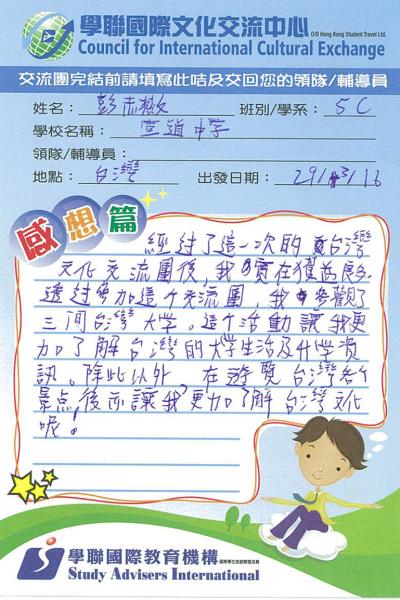 學聯國際文化交流中心 O/B Hong Kong Student Travel Ltd.
Council for International Cultural Exchange
交流團完結前請填寫此咭及交回您的領隊/輔導員
姓名: 彭 班別/學系: 5C
學校名稱: 宣道中學
領隊/輔導員:
地點: 台灣 出發日期: 29/3/16
感想篇
經過了這一次的台灣
文化交流團後,我實在獲益良多
透過參加這个交流團,我參觀了
三间台灣大學。這个活動讓我更
加了解台灣的大學生活及升學資
訊。除此以外 在遊覽台灣各个
景点後亦讓我更加了解台灣文化
呢!
學聯國際教育機構
Study Advisers International